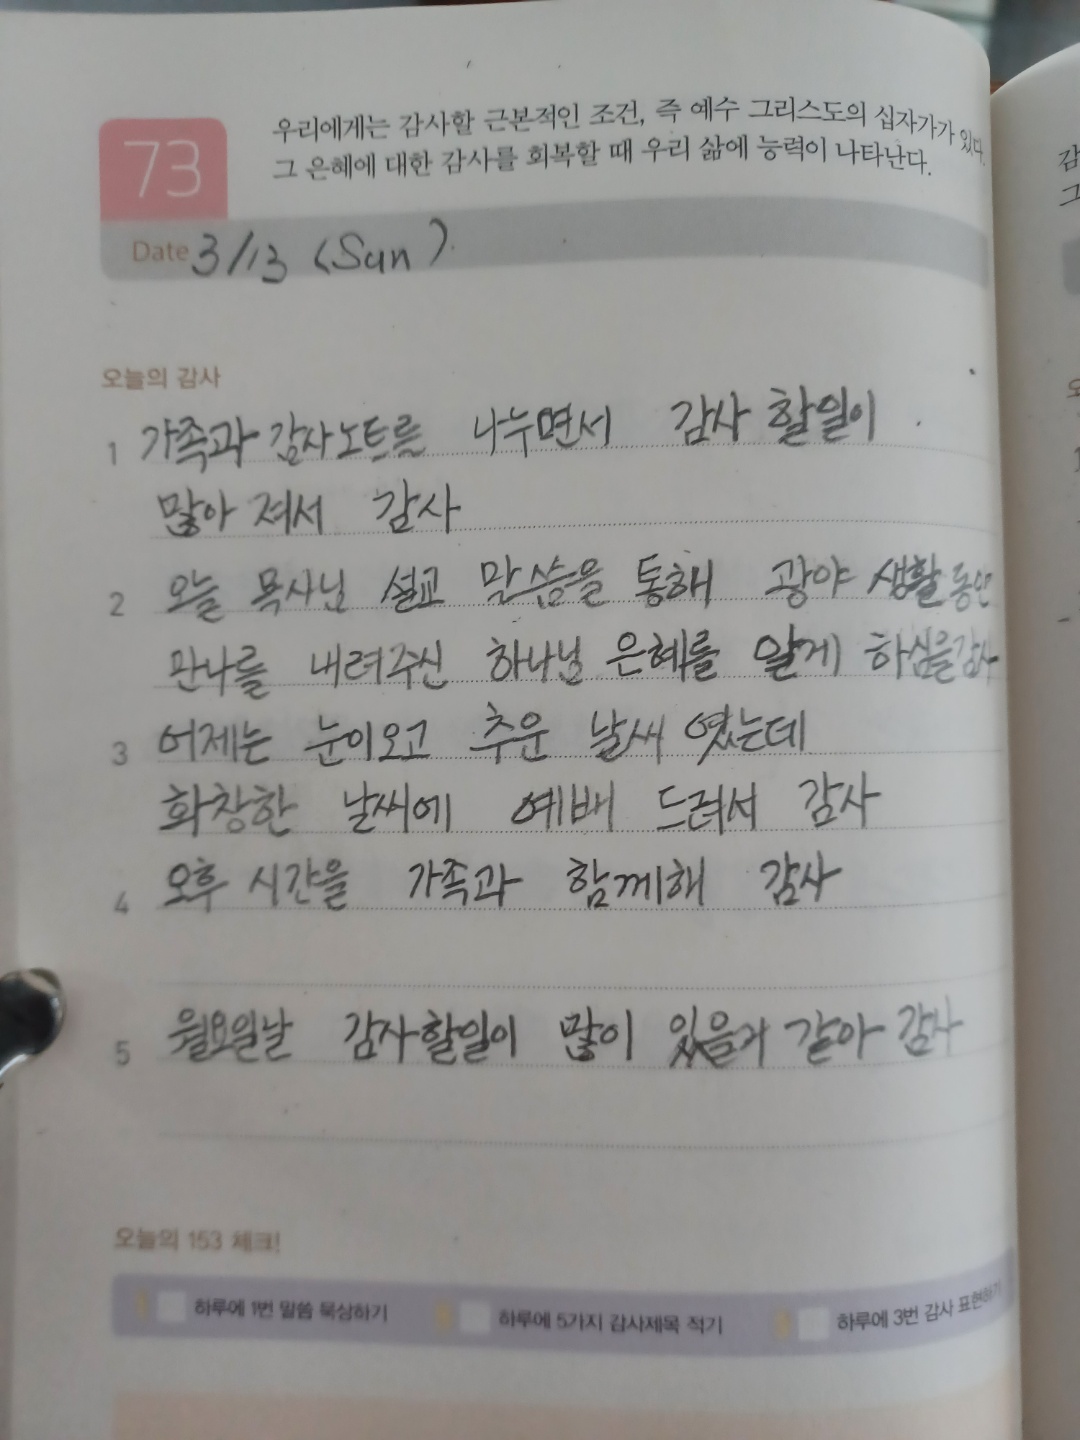 우리에게는 감사할 근본적인 조건, 즉 예수 그리스도의 십자가가 있다.
그 은혜에 대한 감사를 회복할 때 우리 삶에 능력이 나타난다.
73
Date 3/13 (Sun)
오늘의 감사
1 가족과 감사노트를 나누면서 감사 할일이
많아 져서 감사
2 오늘 목사님 설교 말씀을 통해 광야 생활 동안
만나를 내려주신 하나님 은혜를 알게 하심을 감사
3 어제는 눈이오고 추운 날씨 였는데
화창한 날씨에 예배 드려서 감사
4 오후 시간을 가족과 함께해 감사
5 월요일날 감사할일이 많이 있을거 같아 감사
오늘의 153 체크!
1 하루에 1번 말씀 묵상하기 5 하루에 5가지 감사제목 적기 3 하루에 3번 감사 표현하기